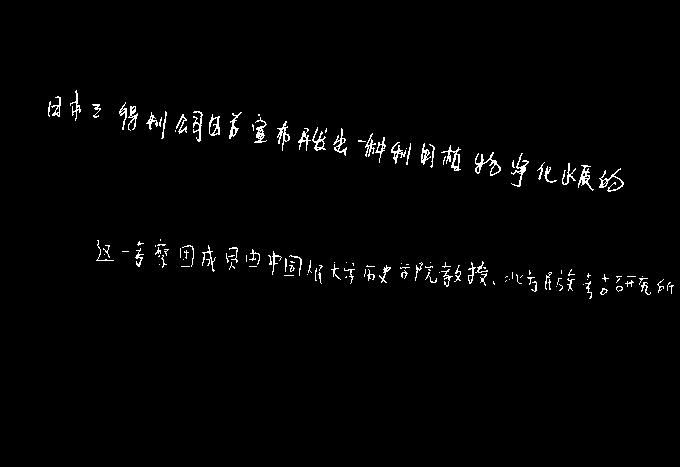 日本三得利公司日前宣布开发出一种利用植物净化水质的
这一考察团成员由中国人民大学历史学院教授、北方民族考古研究所